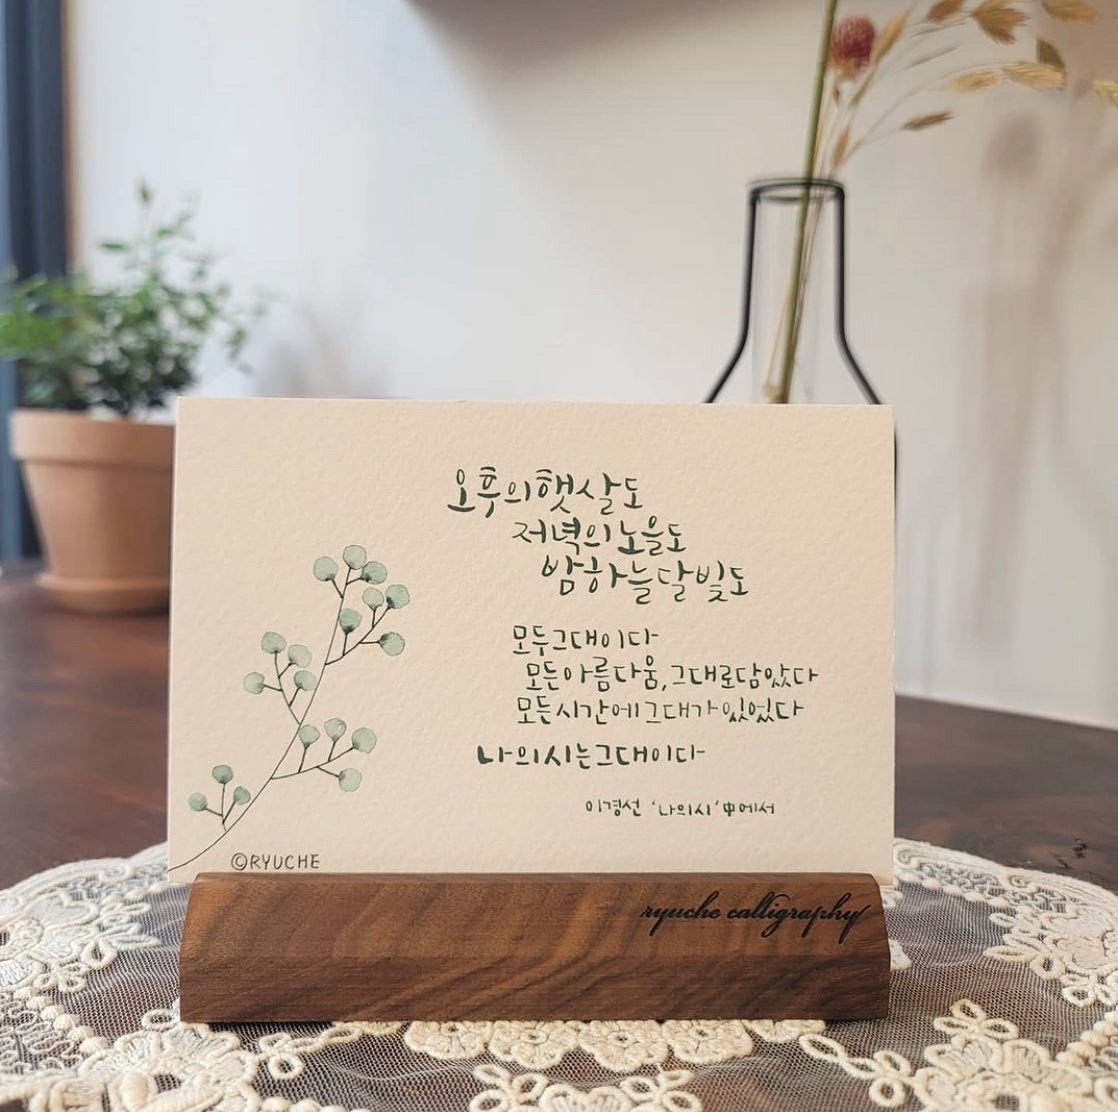 오후의 햇살도
저녁의 노을도
밤하늘 달빛도
모두 그대이다
모든 아름다움, 그대로 담았다
모든 시간에 그대가 있었다
나의 시는 그대이다
이경선 '나의 시' 中에서
©RYUCHE
ryuche calligraphy